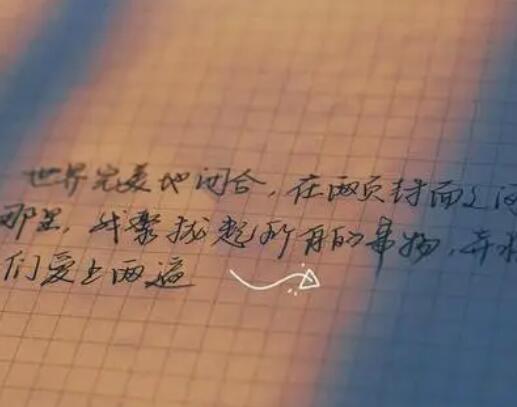 世界完美地闭合，在两页封面之间
那里，我聚拢起所有的事物，并将
们爱上两遍